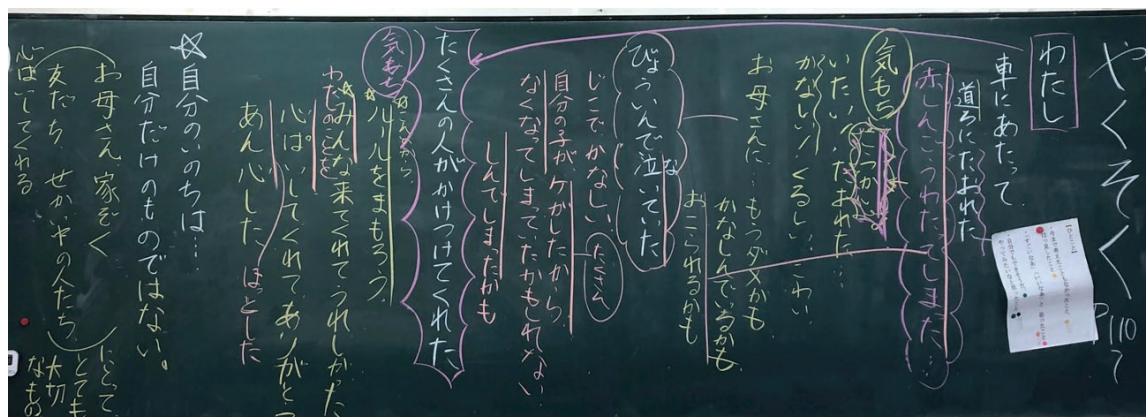 やくそく P110〜
わたし
車にあたって
道ろにたおれた
赤しんごうわたってしまった…
気もち
いたい、たおれた…
かなしい、くるしい、こわい
お母さんに…もうダメかも
かなしんでいるかも
おこられるかも
びょういんで泣いていた
な
じこで、かなしい。たくさん
自分の子が、ケガしたから、
なくなってしまってたかもしれない
しんでしまったかも
たくさんの人がかけつけてくれた
気もち
ルールをまもろう
みんな来てくれて、うれしかった
わたしのことを
心ぱいしてくれて、ありがとう
あん心した、ほっとした
☆自分のいのちは…
自分だけのものではない。
お母さん、家ぞく
友だち、せかい中の人たち
心ぱいしてくれる
にとって、
とても
大切
なもの